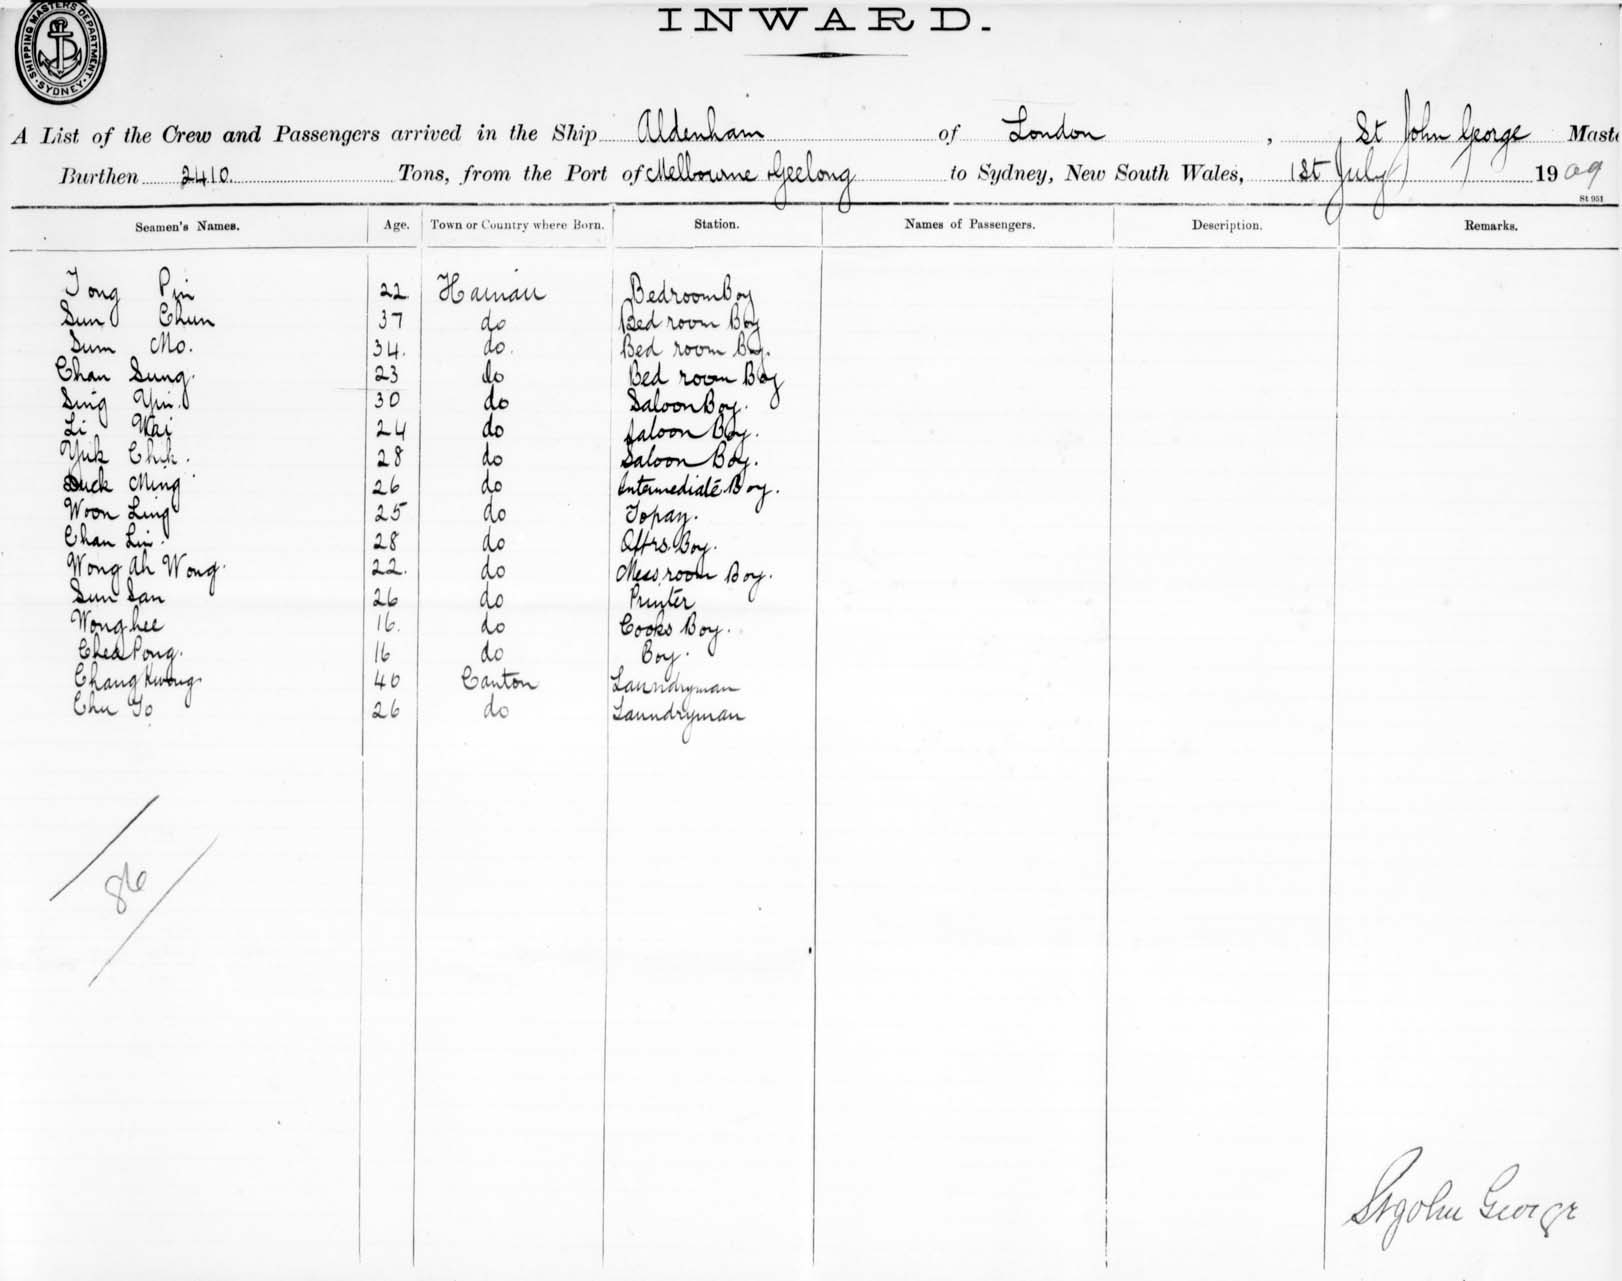 SHIPPING MASTERS DEPARTMENT
SYDNEY
INWARD.
A List of the Crew and Passengers arrived in the Ship Aldenham of London, St John George Maste
Burthen 2410. Tons, from the Port of Melbourne & Geelong to Sydney, New South Wales, 1st July 1909
St 951
Seamen's Names. Age. Town or Country where Born. Station. Names of Passengers. Description. Remarks.
Tong Pin 22. Hainan Bedroom Boy
Sun Chun 37 do Bed room Boy
Sum Mo. 34. do. Bed room Boy.
Chan Sung. 23 do Bed room Boy
Sing Yin. 30 do Saloon Boy.
Li Wai 24 do Saloon Boy.
Yuk Chik. 28 do Saloon Boy.
Suck Ming 26 do Intermediate Boy.
Woon Ling 25 do Topay.
Chan Lin. 28 do Offrs. Boy.
Wong Ah Wong. 22. do Mess room Boy.
Sun San 26 do Printer
Wong hee 16. do Cooks Boy.
Chea Pong. 16 do Boy.
Chang Kwong 40 Canton Laundryman
Chu To 26 do Laundryman
86
St John George